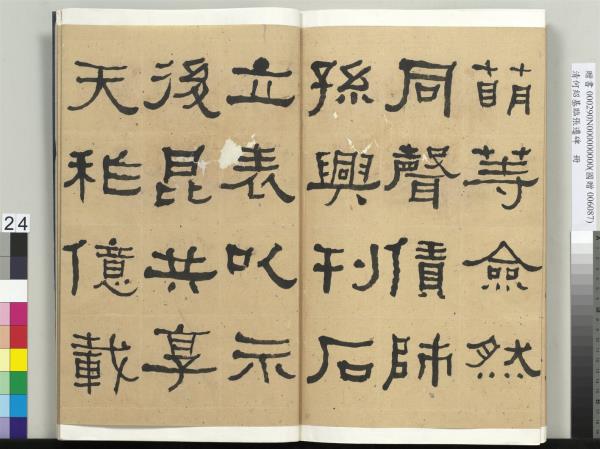 萌等僉然
同聲僨師
孫興刊石
立表以示
後昆共享
天祚億載
贈書 000290N000000000(國贈 006087)
清何紹基臨張遷碑 冊
24